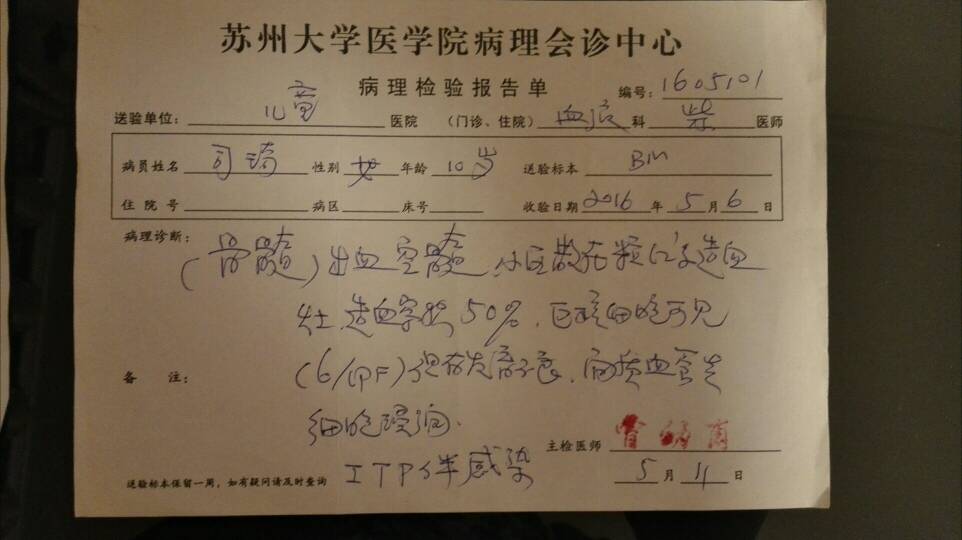 苏州大学医学院病理会诊中心
病理检验报告单 编号: 1605101
送验单位: 儿童 医院 (门诊、住院) 血液 科 柴 医师
病员姓名 司琦 性别 女 年龄 10岁 送验标本 BM
住院号 病区 床号 收验日期 2016 年 5 月 6 日
病理诊断:
(骨髓) 出血空髓, 小区散在粒红系造血
灶, 造血容积 50%, 巨核细胞可见
备 注: (6/HPF)
细胞浸润.
ITP伴感染
主检医师
5 月 11 日
送验标本保留一周,如有疑问请及时查询